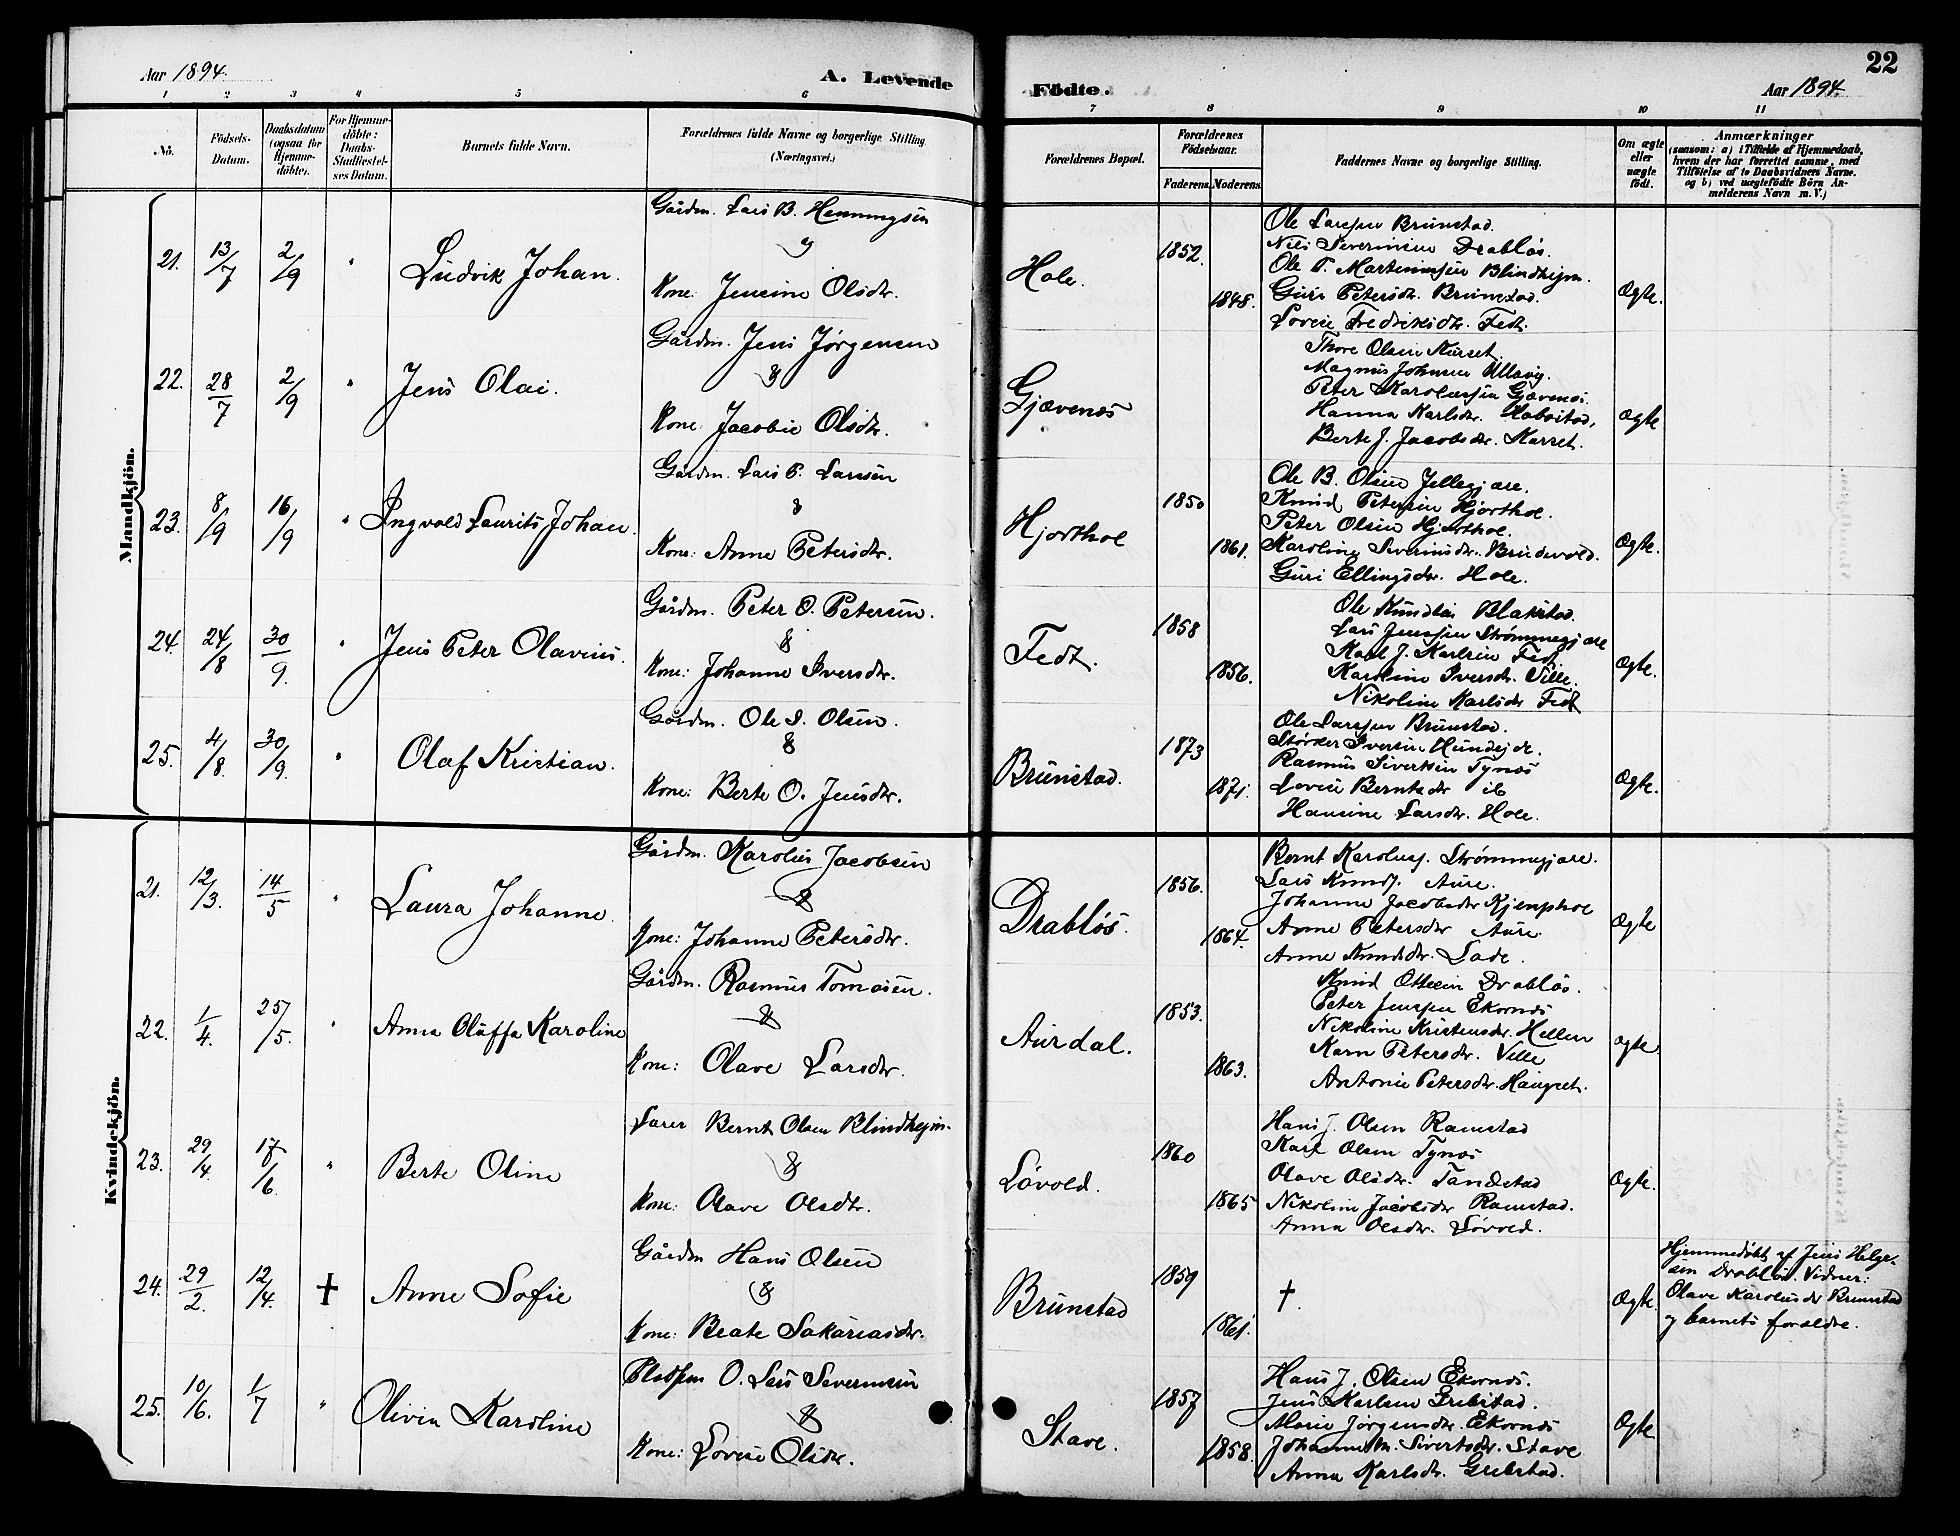 Aar 1894.
A. Levende
Födte.
22
Aar 1894.
1 2 3 4 5 6 7 8 9 10 11
No.
Födsels-
Datum.
Daabsdatum
(ogsaa for
Hjemme-
döbte).
For Hjemme-
döbte:
Daabs-
Stadfæstel-
ses Datum.
Barnets fulde Navn.
Forældrenes fulde Navne og borgerlige Stilling
(Næringsvei.)
Forældrenes Bopæl.
Forældrenes
Födselsaar.
Faderens. Moderens.
Faddernes Navne og borgerlige Stilling.
Om ægte
eller
uægte
födt.
Anmærkninger
(saasom: a) i Tilfælde af Hjemmedaab,
hvem der har forrettet samme, med
Tilföielse af to Daabsvidners Navne.
og b) ved uægtefödte Börn An-
melderens Navn m. V.)
Mandkjön.
21. 13/7 2/9 " Ludvik Johan.
Gårdm. Lars B. Henningsen
&
Kone: Jensine Olsdtr.
Hole. 1852. 1848.
Ole Larssen Brunstad.
Nils Severinsen Drabløs.
Ole T. Martinussen Blindhejm.
Guri Petersdtr. Brunstad.
Lovise Fredriksdtr. Fedt.
Ægte.
22. 28/7 2/9 " Jens Olai.
Gårdm. Jens Jørgensen
&
Kone: Jacobie Olsdtr.
Gjævenes
Thore Olsen Kurset.
Magnus Johnsen Ullavig.
Peter Karolussen Gjævenes.
Hanna Karlsdtr. Habostad,
Berte J. Jacobsdtr. Kurset.
Ægte
23. 8/9 16/9 " Ingvald Laurits Johan.
Gårdm. Lars P. Larsen
&
Kone: Anne Petersdtr.
Hjorthol 1850 1861.
Ole B. Olsen Jellegjære.
Knud Petersen Hjorthol.
Peter Olsen Hjorthol.
Karoline Severinsdtr. Brudevold.
Guri Ellingsdtr. Hole.
Ægte.
24. 24/8 30/9. " Jens Peter Olavius.
Gårdm. Peter O. Petersen.
&
Kone: Johanne Iversdtr.
Fedt. 1858 1856.
Ole Knudsen Blakstad.
Lars Jenssen Strømmegjære
Karl J. Karlsen Fedt
Karoline Iversdtr. Velle.
Nikoline Karlsdtr Fedt
Ægte.
25. 4/8. 30/9. " Olaf Kristian.
Gårdm. Ole S. Olsen.
&
Kone: Berte O. Jensdtr.
Brunstad. 1873 1871.
Ole Larssen Brunstad.
Størker Iversen Hundejde.
Rasmus Sivertsen Tynes
Lovise Berntsdtr ib
Hansine Larsdtr. Hole.
Ægte.
Kvindekjön.
21. 12/3. 14/5 " Laura Johanne.
Gårdm. Karolus Jacobsen
&
Kone: Johanne Petersdtr.
Drabløs. 1856. 1864.
Bernt Karolus. Strømmegjære.
Lars Knuds. Aure.
Johanne Jacobsdtr Kjemphol
Anne Petersdtr Aure.
Anne Knudsdtr. Lade.
Ægte
22. 1/4. 25/5. " Anna Oluffa Karoline
Gårdm. Rasmus Tomasen.
&
Kone: Olave Larsdtr.
Aurdal. 1853. 1863.
Knud Ottesen Drabløs.
Peter Jenssen Ekornes
Nikoline Kristensdtr. Hellen
Karn Petersdtr. Velle
Antonie Petersdtr. Haugset.
Ægte.
23. 29/4. 17/6. " Berte Oline
Lærer Bernt Olsen Blindhejm.
&
Kone: Olave Olsdtr.
Løvold. 1860 1865
Hans J. Olsen Ramstad
Karl Olsen Tynes
Olave Olsdtr. Tandstad
Nikoline Jacobsdtr Ramstad.
Anna Olsdtr. Løvold.
Ægte.
24. 29/2. 12/4. † Anne Sofie
Gårdm Hans Olsen
&
Kone: Beate Sakariasdtr.
Brunstad 1859 1861.
†.
Ægte.
Hjemmedøbt af Jens Helge-
sen Drabløs. Vidner:
Olave Karolusdtr Brunstad
og barnets forældre.
25. 10/6. 1/7 " Olivia Karoline
O. Lars Severinsen
&
Kone: Lovise Olsdtr.
Stave. 1857 1858.
Hans J. Olsen Ekornes.
Jens Karlsen Grebstad.
Marie Jørgensdtr. Ekornes
Johanne M. Sivertsdtr. Stave
Anna Karlsdtr. Grebstad.
Ægte.